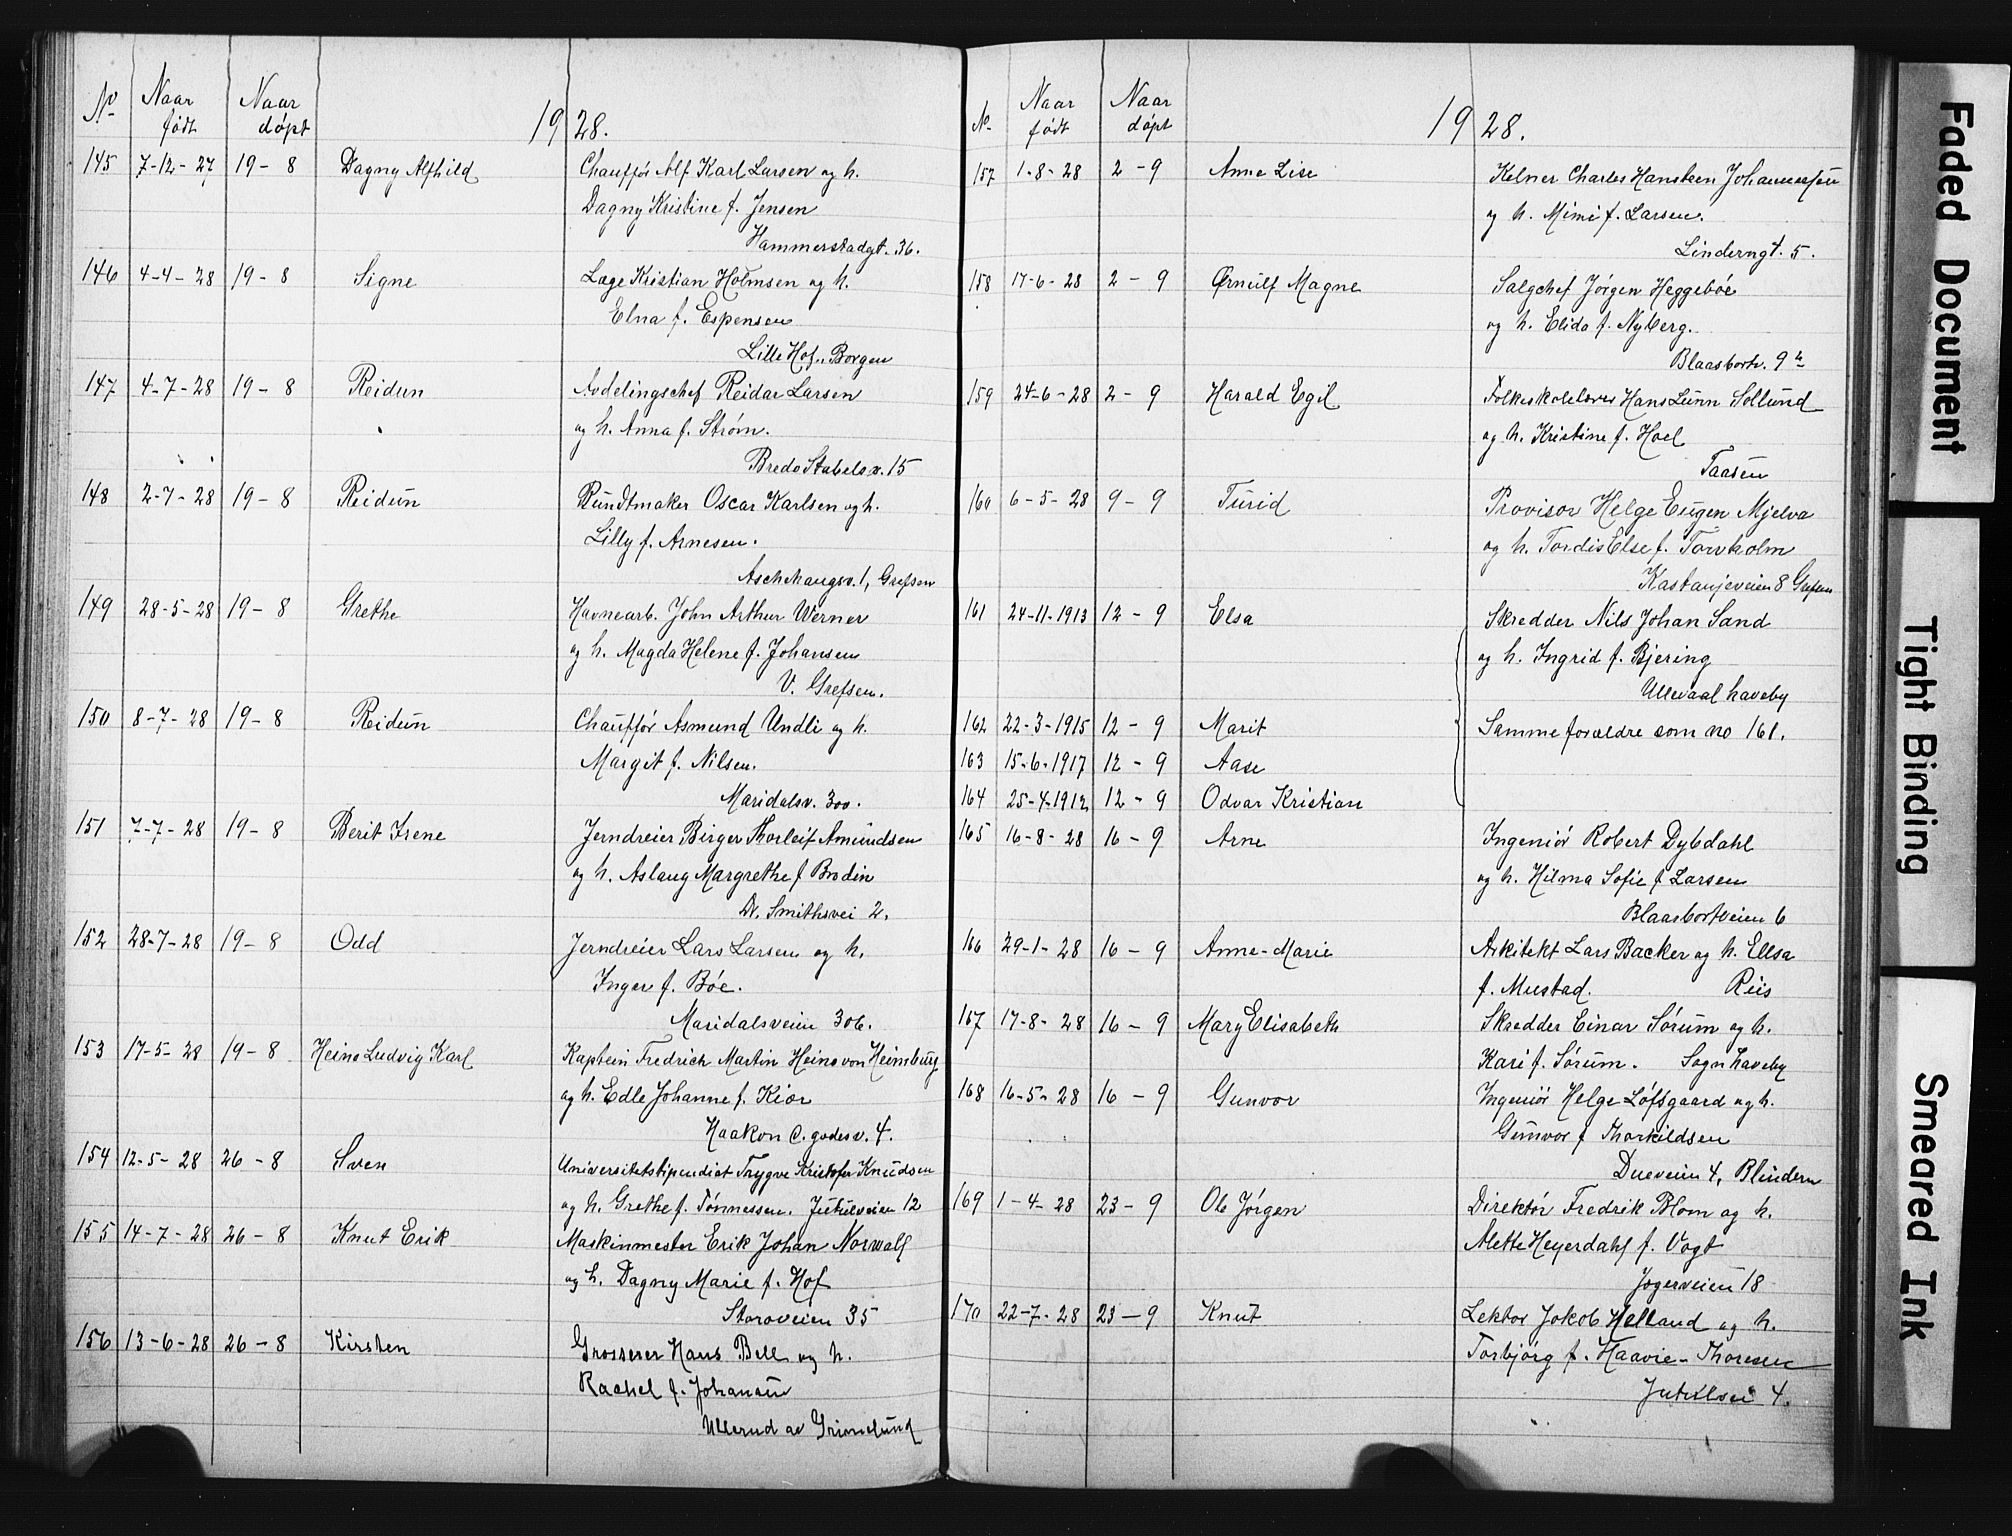 No Naar født Naar døpt 1928.
145 7-12-27 19-8 Dagny Alfhild Chauffør Alf Karl Larsen og h.
Dagny Kristine f. Jensen
Hammerstadgt. 36.
146 4-4-28 19-8 Signe Læge Kristian Holmsen og h.
Elna f. Espensen
Lille Hof., Borgen
147 4-7-28 19-8 Reidun Avdelingschef Reidar Larsen
og h. Anna f. Strøm.
Bredo Stabelsv. 15
148 2-7-28 19-8 Reidun Bundtmaker Oscar Karlsen og h.
Lilly f. Arnesen.
Aschehougsv. 1, Grefsen
149 28-5-28 19-8 Grethe Havnearb. John Arthur Werner
og h. Magda Helene f. Johansen
V. Grefsen.
150 8-7-28 19-8 Reidun Chauffør Asmund Undli og h.
Margit f. Nilsen.
Maridalsv. 300.
151 7-7-28 19-8 Berit Irene Jerndreier Birger Thorleif Amundsen
og h. Aslaug Margrethe f Brodin
Dr. Smithsvei 2.
152 28-7-28 19-8 Odd Jerndreier Lars Larsen og h.
Inger f. Bøe.
Maridalsveien 306.
153 17-5-28 19-8 Heino Ludvig Karl Kaptein Fredrich Martin Heino von Heimburg
og h. Edle Johanne f. Kiør
Haakon d. godesv. 4.
154 12-5-28 26-8 Sven Universitetstipendiat Trygve Kristofer Knudsen
og h. Grethe f. Tønnessen. Jutulveien 12
155 14-7-28 26-8 Knut Erik Maskinmester Erik Johan Norwall
og h. Dagny Marie f. Hof
Storoveien 35
156 13-6-28 26-8 Kirsten Grosserer Hans Bell og h.
Rachel f. Johansen
Ullerud av Grimelund
No Naar født Naar døpt 1928.
157 1-8-28 2-9 Anne Lise Kelner Charles Hansteen Johannessen
og h. Mimi f. Larsen.
Linderngt. 5.
158 17-6-28 2-9 Ørnulf Magne Salgchef Jørgen Heggebøe
og h. Elida f. Nyberg.
Blaasbortv. 9
159 24-6-28 2-9 Harald Egil Folkeskolelærer Hans Lunn Sollund
og h. Kristine f. Hoel
Taasen
160 6-5-28 9-9 Turid Provisor Helge Eugen Mjelva
og h. Tordis Else f. Tornholm
Kastanjeveien 8 Grefsen
161 24-11-1913 12-9 Elsa Skredder Nils Johan Sand
og h. Ingrid f. Bjering
Ullevaal haveby
162 22-3-1915 12-9 Marit Samme forældre som no 161.
163 15-6-1917 12-9 Aase
164 25-4-1912 12-9 Odvar Kristian
165 16-8-28 16-9 Arne Ingeniør Robert Dybdahl
og h. Hilma Sofie f Larsen
Blaasbortveien 6
166 29-1-28 16-9 Anne-Marie Arkitekt Lars Backer og h. Ellsa
f. Mustad. Riis
167 17-8-28 16-9 Mary Elisabeth Skredder Einar Sørum og h.
Kari f. Sørum. Sogn haveby
168 16-5-28 16-9 Gunvor Ingeniør Helge Løfsgaard og h.
Gunvor f Thorkildsen
Dueveien 4, Blindern
169 1-4-28 23-9 Ole Jørgen Direktør Fredrik Blom og h.
Alette Heyerdahl f. Vogt
Jegerveien 18
170 22-7-28 23-9 Knut Lektor Jakob Helland og h.
Torbjørg f. Haavie-Thoresen
Jutulvei 4.
Faded Document
Tight Binding
Smeared Ink